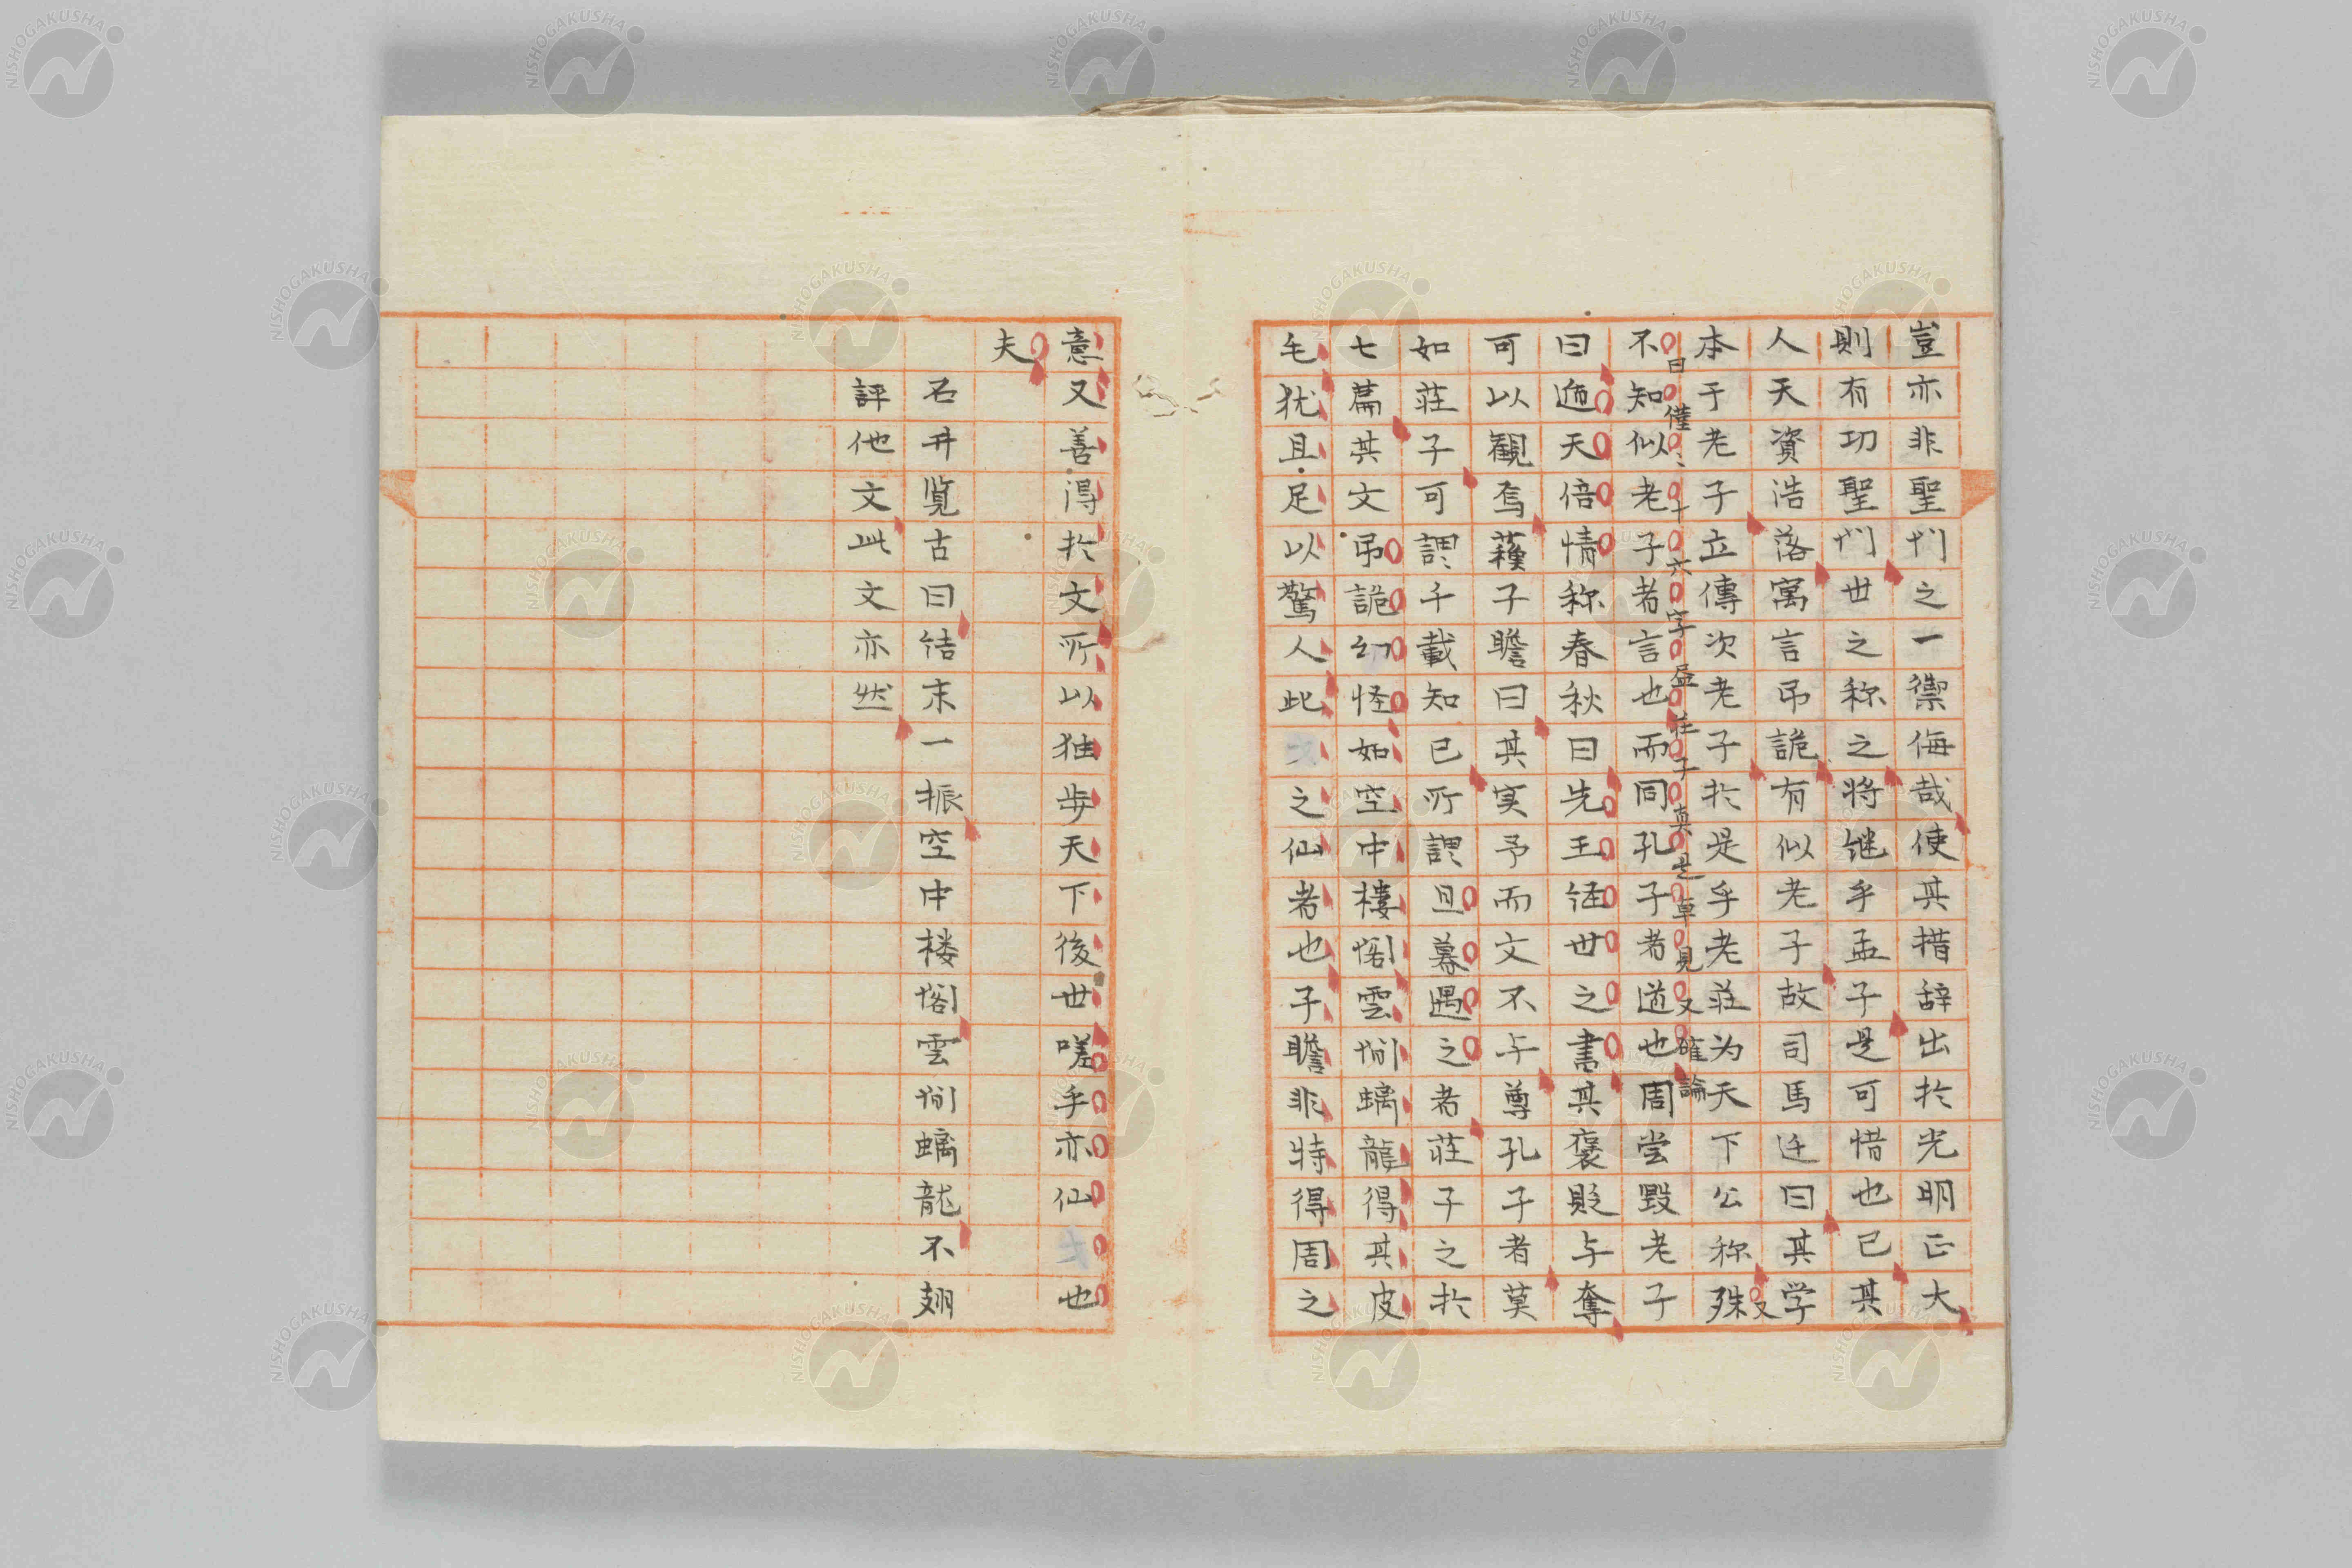 豈亦非聖门之一禦侮哉使其措辞出於光明正大
則有功聖门世之称之将継乎孟子是可惜也已其
人天資浩落寓言吊詭有似老子故司馬迁曰其学
本于老子立傳次老子於是乎老莊为天下公称殊
又曰僅〻十六字昼莊子真是卓見又確論
不知似老子者言也而同孔子者道也周尝毀老子
曰遁天倍情称春秋曰先王经世之書其褒貶与奪
可以観焉蘓子瞻曰其実予而文不与尊孔子者莫
如莊子可謂千載知己所謂旦暮遇之者莊子之於
七篇其文吊詭幻怪如空中樓阁雲间螭龍得其皮
毛犹且足以驚人此文之仙者也子瞻非特得周之
意又善得於文所以独步天下後世嗟乎亦仙也
夫
石井覧古曰结末一振空中楼阁雲间螭龍不翅
評他文此文亦然
NISHOGAKUSHA